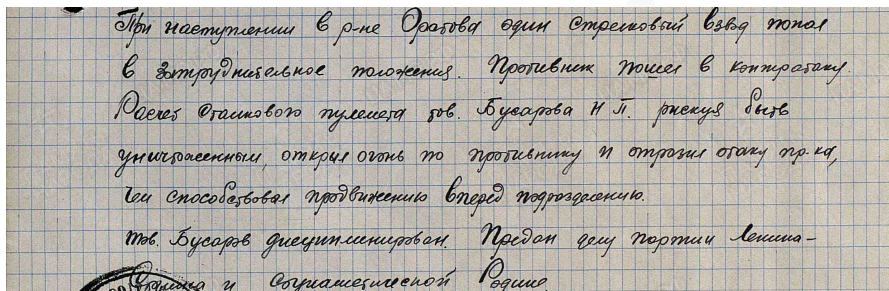 При наступлении в р-не Оратова один стрелковый взвод попал
в затруднительное положения. Противник пошел в контратаку.
Расчет станкового пулемета тов. Бусарова Н П. рискуя быть
уничтоженным, открыл огонь по противнику и отразил атаку пр-ка,
чем способствовал продвижению вперед подразделению.
тов. Бусаров дисциплинирован. Предан делу партии Ленина-
Сталина и Социалистической Родине.